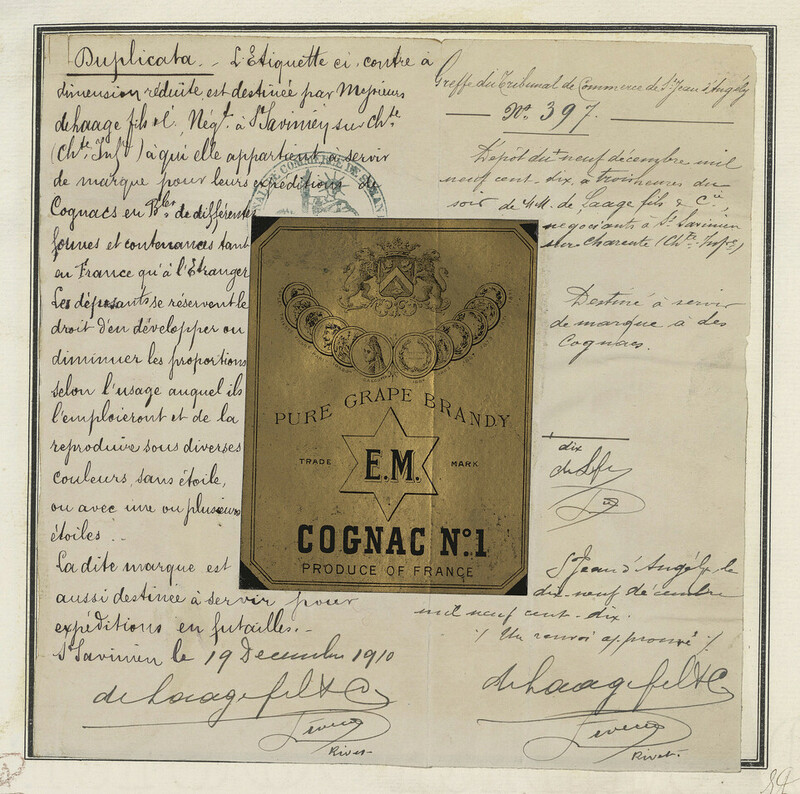 Duplicata. - L'Etiquette ci. contre à
dimension réduite est destinée par Messieurs
de Laage fils & Cie, Négts. à St Savinien sur Chte
(Chte Infre) à qui elle appartient à servir
de marque pour leurs expéditions de
Cognacs en Bles de différentes
formes et contenances tant
en France qu'à l'Etranger
Les déposants se réservent le
droit d'en développer ou
diminuer les proportions
selon l'usage auquel ils
l'emploieront et de la
reproduire sous diverses
couleurs sans étoile,
ou avec une ou plusieurs
étoiles . .
La dite marque est
aussi destinée à servir pour
expéditions en futailles. -
St Savinien le 19 Decembre 1910
de Laage fils & Co
Rivet
Greffe du Tribunal de Commerce de St Jean d'Angély
No. 397.
Dépôt du neuf décembre mil
neuf cent-dix, à trois heures du
soir de MM. de Laage fils & Cie,
négociants à St Savinien
sur Charente (Chte Infre)
Destiné à servir
de marque à des
Cognacs.
dix
St Jean d'Angély le
dix-neuf décembre
mil neuf cent-dix.
./ Un renvoi approuvé ./
de Laage fils & Co
Rivet.
PURE GRAPE BRANDY
TRADE E.M. MARK
COGNAC No.1
PRODUCE OF FRANCE